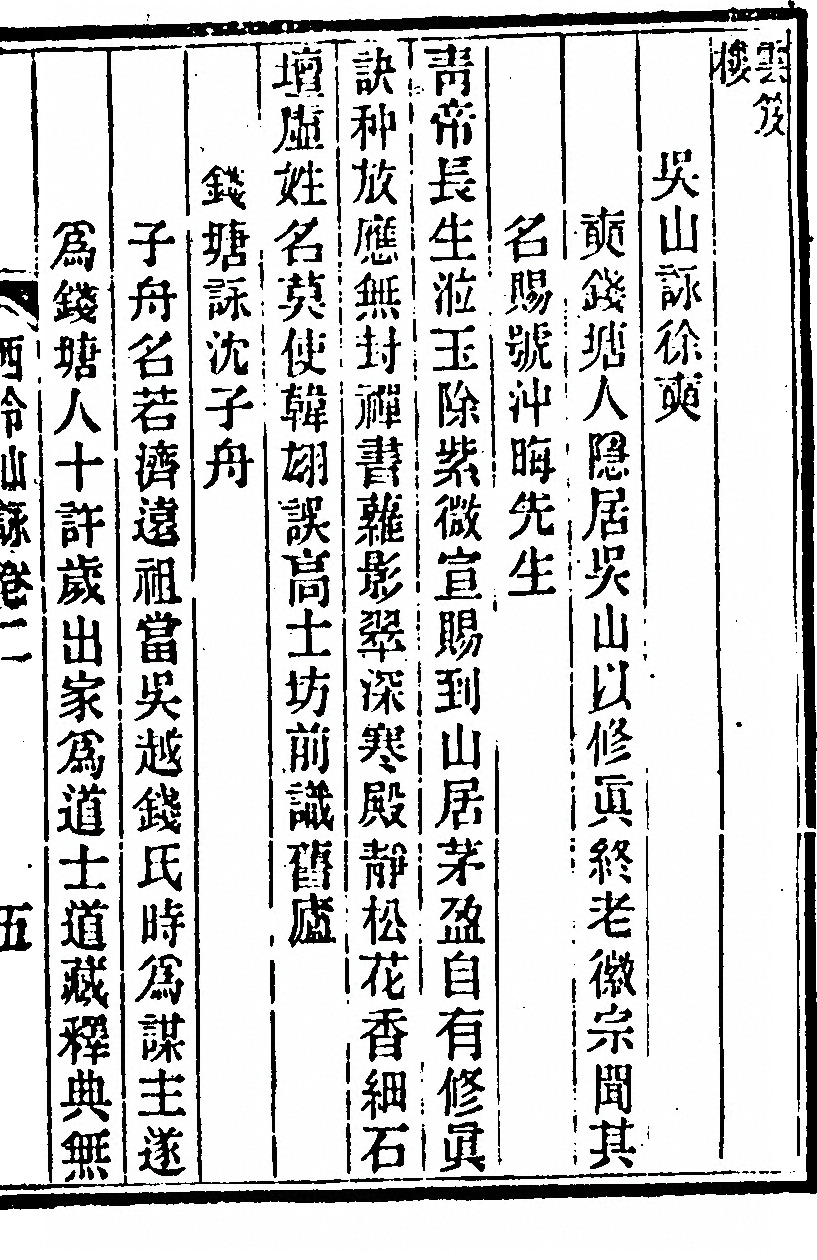 雲笈
樓
吳山詠徐奭
奭錢塘人隱居吳山以修眞終老徽宗聞其
名賜號沖晦先生
靑帝長生涖玉除紫微宣賜到山居茅盈自有修眞
訣种放應無封禪書蘿影翠深寒殿靜松花香細石
壇虛姓名莫使韓翃誤高士坊前識舊廬
錢塘詠沈子舟
子舟名若濟遠祖當吳越錢氏時爲謀主遂
爲錢塘人十許歲出家爲道士道藏釋典無
西泠山詠卷二 五